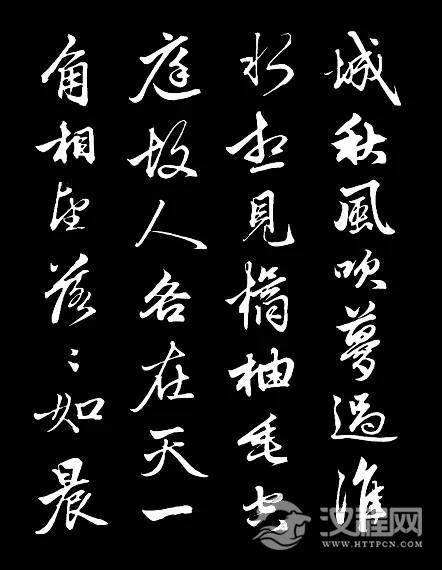 城秋風吹夢過淮
水想見橘柚垂空
庭故人各在天一
角相望落〻如晨
汉程网
WWW.HTTPCN.COM